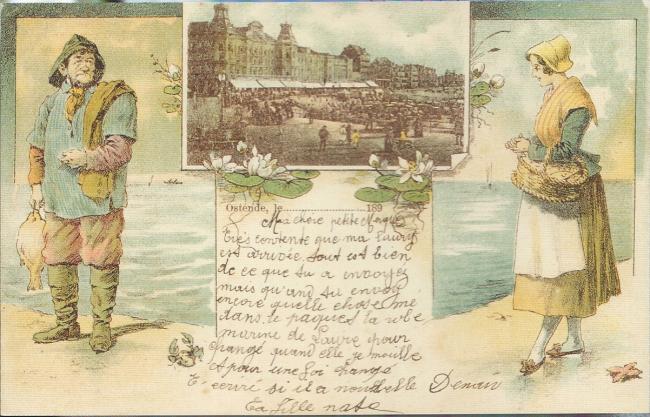 Ostende, le 189
Ma chere petite
très contente que ma
est arrivée. tout est bien
de ce que tu a envoyez
mais qu'and tu envoy
encore quelle chose me
dans le paques la robe
marine de Laure pour
changé quand elle se mouille
et pour une foi changé
écriré si il a nouvelle Demain
Ta fille